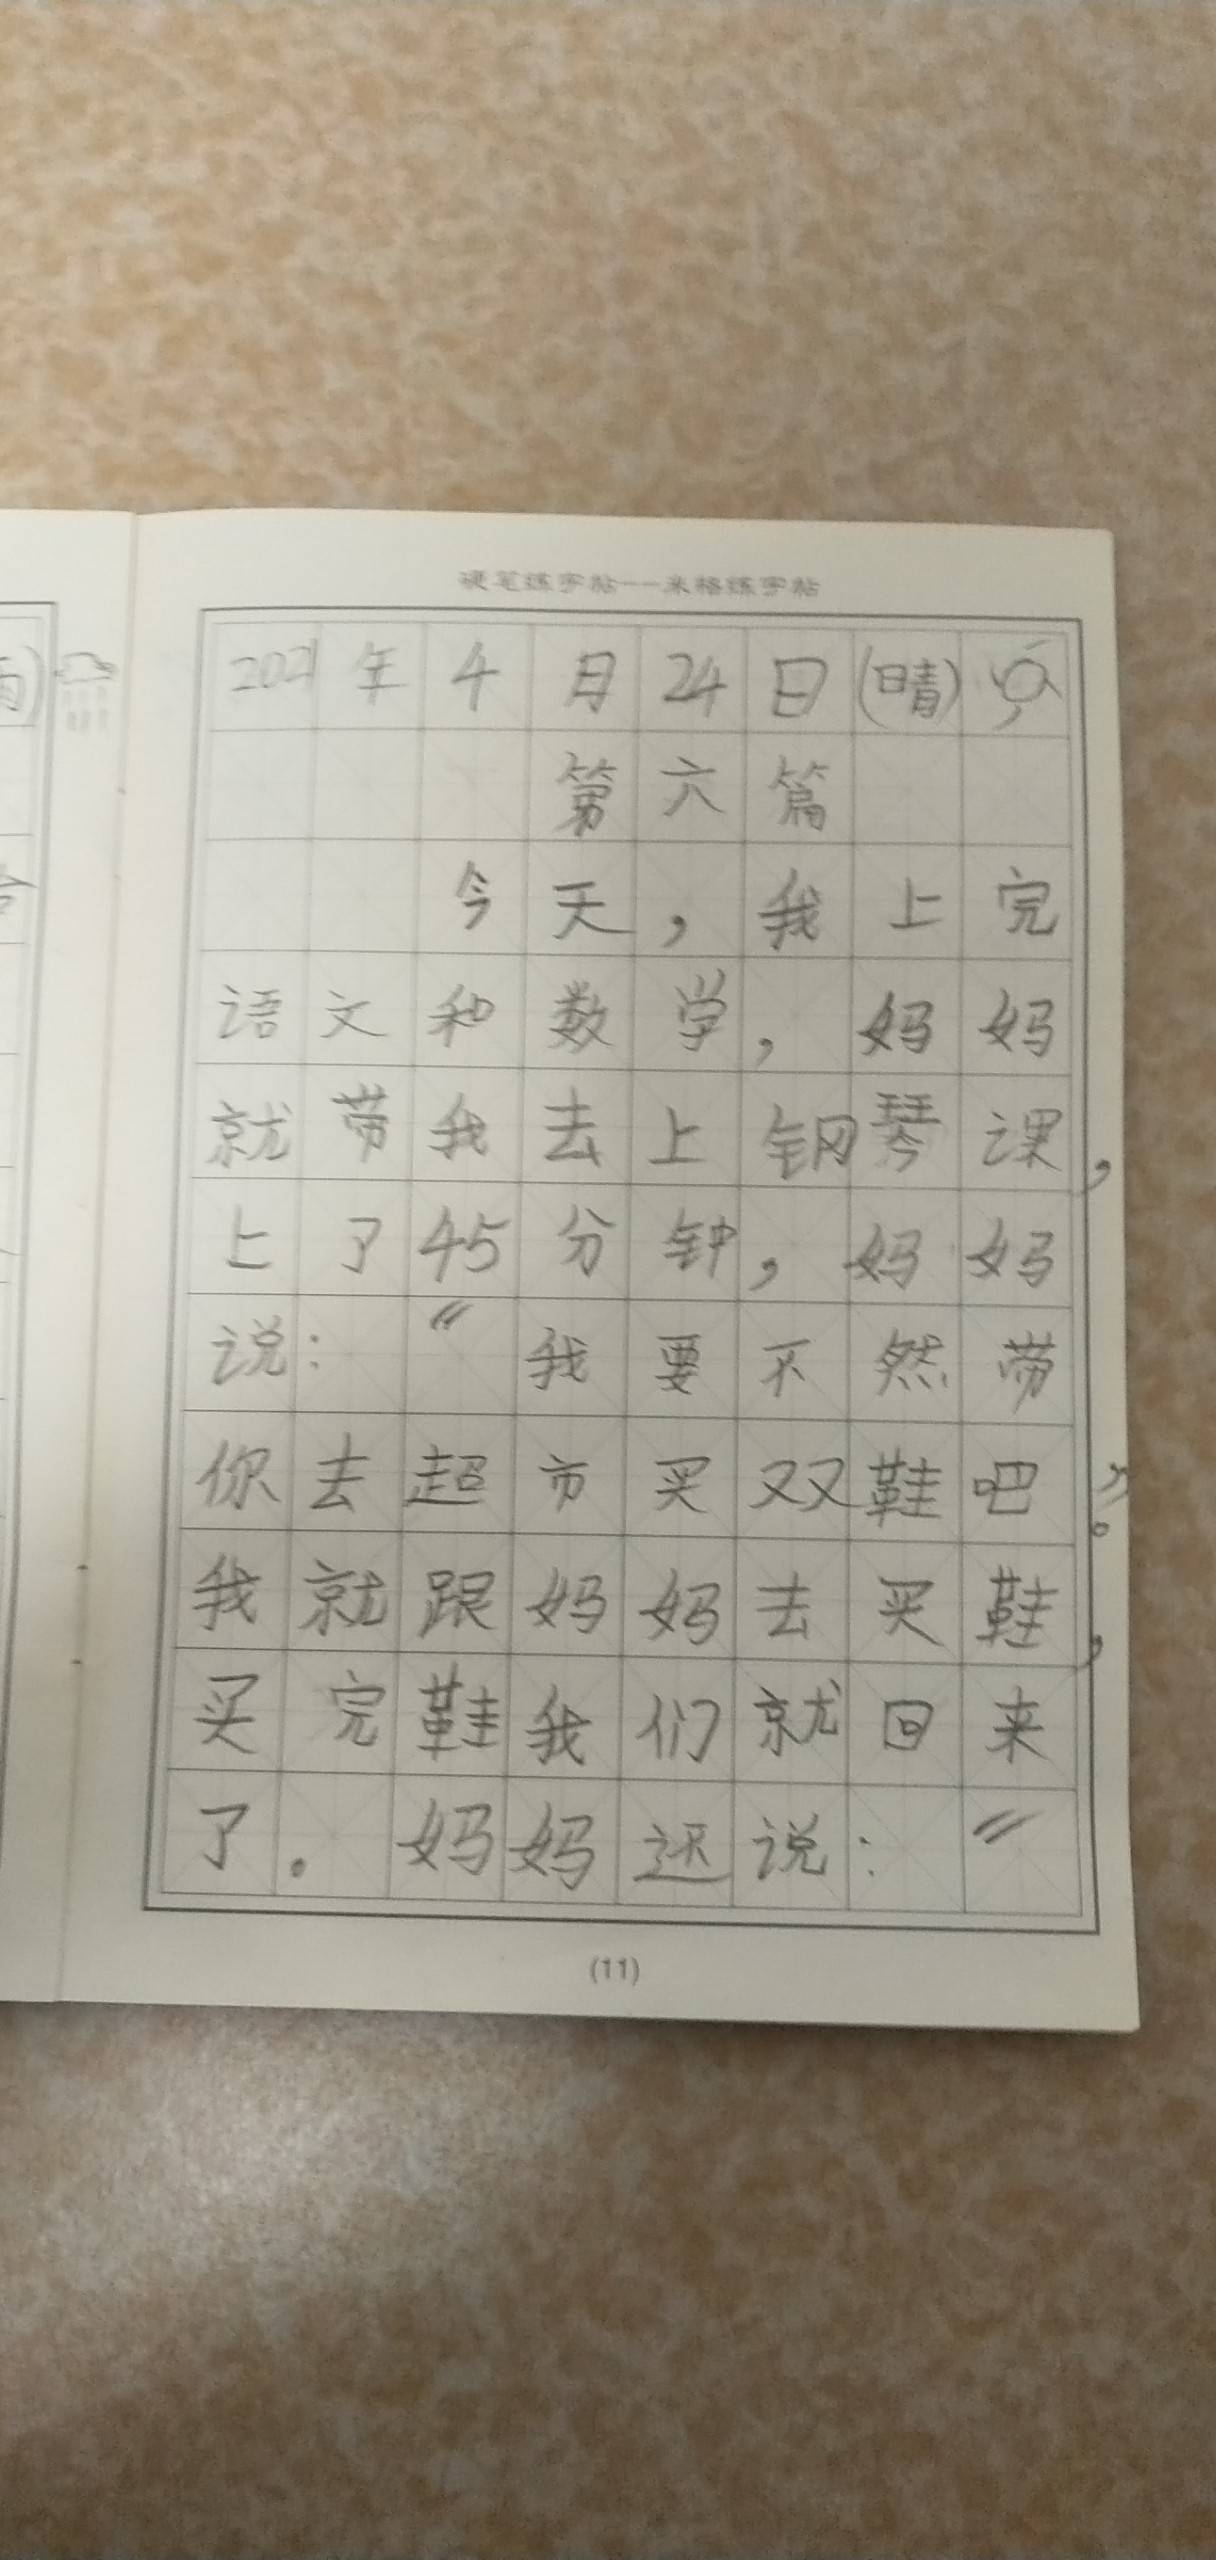 硬笔练字帖--米格练字帖
2021年4月24日(晴)
第六篇
今天,我上完
语文和数学,妈妈
就带我去上钢琴课,
上了45分钟,妈妈
说:“我要不然带
你去超市买双鞋吧”。
我就跟妈妈去买鞋,
买完鞋我们就回来
了。妈妈还说:“
(11)